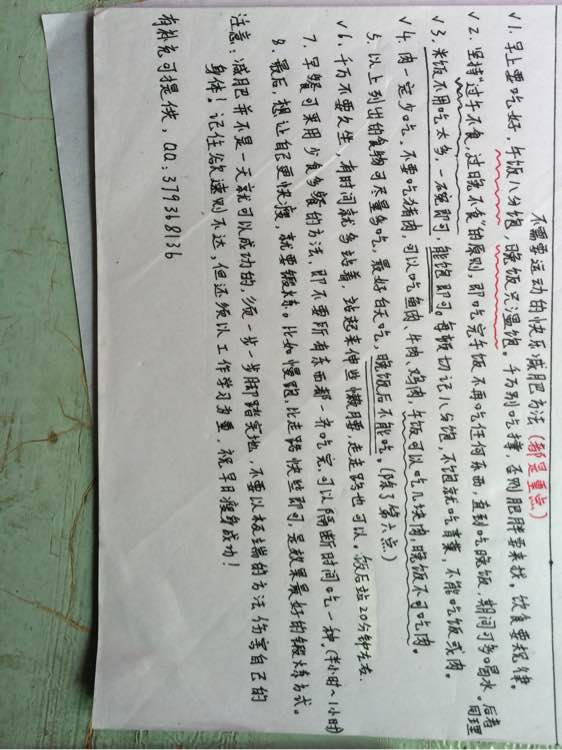 不需要运动的快乐减肥方法(都是重点)
√1. 早上要吃好,午饭八分饱,晚饭只温饱。千万别吃撑,否则肥胖要来找。饮食要规律。
√2. 坚持“过午不食,过晚不食的原则,即吃完午饭不再吃任何东西,直到吃晚饭,期间可多喝水。后者同理
√3. 米饭不用吃太多,一碗即可,能饱即可。每顿切记八分饱,不饱就吃青菜,不能吃饭或肉。
√4. 肉一定少吃,不要吃猪肉,可以吃鱼肉、牛肉、鸡肉,午饭可以吃几块肉,晚饭不可吃肉。
5. 以上列出的食物可尽量多吃,最好白天吃,晚饭后不能吃。(除了第六点)
√6. 千万不要久坐,有时间就多站着,站起来伸些懒腰,走走路也可以。饭后站20分钟左右
7. 早餐可采用少食多餐的方法,即不要所有东西都一齐吃完,可以隔断时间吃一种。(半小时~1小时)
8. 最后,想让自己更快瘦,就要锻炼。比如慢跑,比走路快些即可,是效果最好的锻炼方式。
注意:减肥并不是一天就可以成功的,须一步一步脚踏实地,不要以极端的方法伤害自己的
身体!记住欲速则不达,但还须以工作学习为重,祝早日瘦身成功!
有补充可提供,QQ:379368136